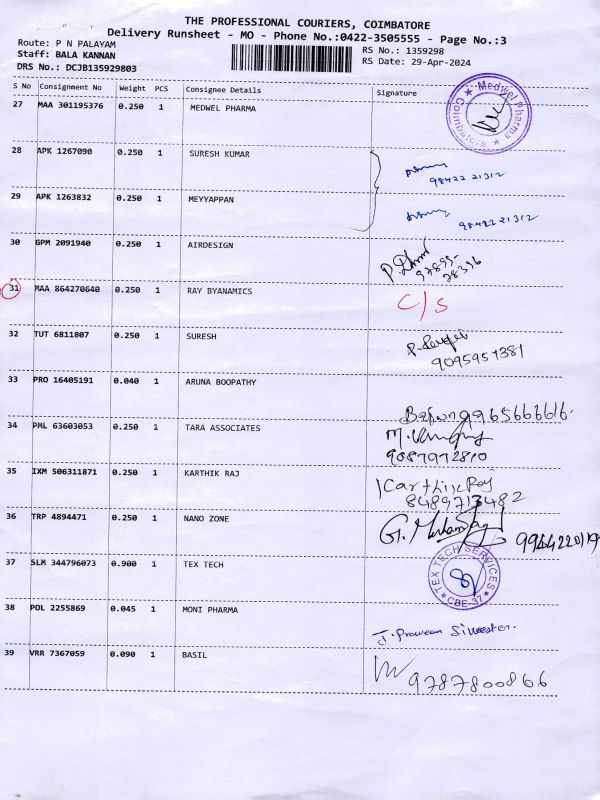 THE PROFESSIONAL COURIERS, COIMBATORE
Delivery Runsheet - MO - Phone No.:0422-3505555 - Page No.:3
Route: P N PALAYAM
RS No.: 1359298
Staff: BALA KANNAN
RS Date: 29-Apr-2024
DRS No.: DCJB135929803
S No Consignment No Weight PCS Consignee Details Signature
27 MAA 301195376 0.250 1 MEDWEL PHARMA
Medwel Pharma ★ Coimbatore ★
28 APK 1267090 0.250 1 SURESH KUMAR
98422 21312
29 APK 1263832 0.250 1 MEYYAPPAN
98422 21312
30 GPM 2091940 0.250 1 AIRDESIGN
31 MAA 864270640 0.250 1 RAY BYANAMICS C/S
32 TUT 6811807 0.250 1 SURESH
9095951381
33 PRO 16405191 0.040 1 ARUNA BOOPATHY
9965666616.
34 PML 63603053 0.250 1 TARA ASSOCIATES
9087972810
35 IXM 506311871 0.250 1 KARTHIK RAJ Karthik Raj
8489713482
36 TRP 4894471 0.250 1 NANO ZONE
9944220119
37 SLM 344796073 0.900 1 TEX TECH
TEX TECH SERVICES ★ CBE-37 ★
38 POL 2255869 0.045 1 MONI PHARMA
J. Praveen Silvester.
39 VRR 7367059 0.090 1 BASIL
9787800866